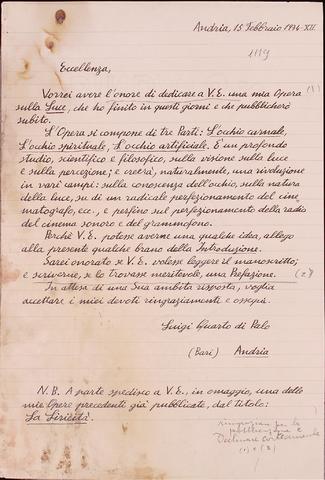 Andria, 15 Febbraio 1934-XII.
1119
Eccellenza,
Vorrei avere l'onore di dedicare a V.E. una mia Opera (1)
sulla Luce, che ho finito in questi giorni e che pubblicherò
subito.
L'Opera si compone di tre Parti: L'occhio carnale,
L'occhio spirituale, L'occhio artificiale. È un profondo
studio, scientifico e filosofico, sulla visione sulla luce
e sulla percezione; e creerà, naturalmente, una rivoluzione
in vari campi: sulla conoscenza dell'occhio, sulla natura
della luce, su di un radicale perfezionamento del cine
matografo, ecc., e perfino sul perfezionamento della radio
del cinema sonoro e del grammofono.
Perchè V.E. potesse averne una qualche idea, allego
alla presente qualche brano della Introduzione.
Sarei onorato se V.E. volesse leggere il manoscritto;
e scriverne, se lo trovasse meritevole, una Prefazione. (2)
In attesa di una Sua ambita risposta, voglia
accettare i miei devoti ringraziamenti e ossequi.
Luigi Quarto di Palo
(Bari) Andria
N.B. A parte spedisco a V.E., in omaggio, una delle
mie Opere precedenti già pubblicate, dal titolo:
La Liricità.
ringraziare per la
pubblicazione e
Declinare cortesemente
(1) e (2)